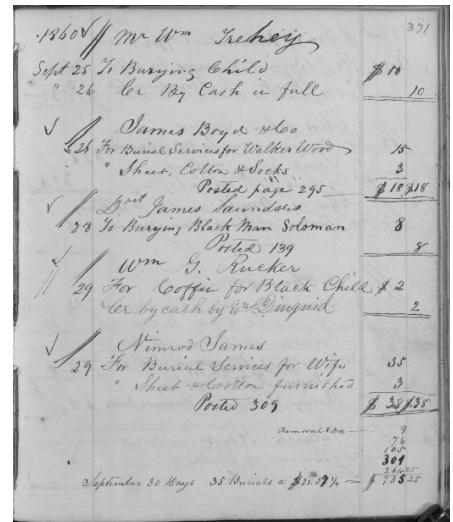 371
1860 Mr Wm Trehey
Sept 25 To Burying Child $10
" 26 Cr By Cash in full 10
James Boyd & Co
26 For Burial Services for Walker Wood 15
" Sheet, Cotton & Socks 3
Posted page 295 $18 $18
Doct James Saunders
28 To Burying Black Man Soloman 8
Posted 139 8
Wm G. Rucker
29 For Coffin for Black Child $2
Cr by cash by Diuguid 2
Nimrod James
29 For Burial Services for Wife 35
" Sheet & Cotton furnished 3
Posted 309 $38 $38
Removal & Box — 9
76
105
301
September 30 Days 35 Burials a —